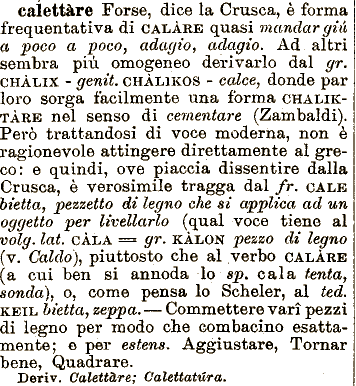 calettàre Forse, dice la Crusca, è forma
frequentativa di CALÀRE quasi mandar giù
a poco a poco, adagio, adagio. Ad altri
sembra più omogeneo derivarlo dal gr.
CHÀLIX - genit. CHÀLIKOS - calce, donde par
loro sorga facilmente una forma CHALIK-
TÀRE nel senso di cementare (Zambaldi).
Però trattandosi di voce moderna, non è
ragionevole attingere direttamente al gre-
co: e quindi, ove piaccia dissentire dalla
Crusca, è verosimile tragga dal fr. CALE
bietta, pezzetto di legno che si applica ad un
oggetto per livellarlo (qual voce tiene al
volg. lat. CÀLA = gr. KÀLON pezzo di legno
(v. Caldo), piuttosto che al verbo CALÀRE
(a cui ben si annoda lo sp. cala tenta,
sonda), o, come pensa lo Scheler, al ted.
KEIL bietta, zeppa. — Commettere varî pezzi
di legno per modo che combacino esatta-
mente; e per estens. Aggiustare, Tornar
bene, Quadrare.
Deriv. Calettàre; Calettatúra.